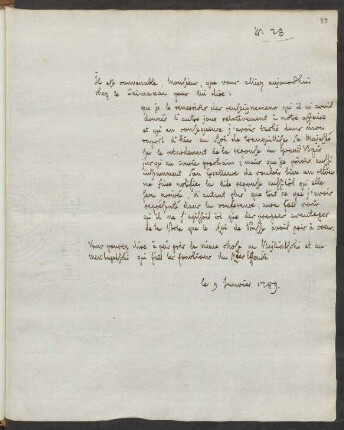 33
N 23
Il est convenable Monsieur, que vous alliez aujourd'hui
chez le pour lui dire:
que je le remerciois des renseignemens qu'il m'avoit
donnés l'autre jour relativement à notre affaire
et qu'en conséquence j'avois taché dans mon
rapport d'hier au Roi de tranquilliser Sa Majesté
sur le retardement de la réponse du Grand Visir
jusqu'au courier prochain; mais que je priois aussi
instamment Son Excellence de vouloir bien au
me faire notifier la dite réponse aussitôt qu'elle
sera arrivée d'autant plus que tout ce que j'avois
dans la conférence, nous fait voir
qu'il ne s'agissoit ici que des propres avantages
de la Porte que le Roi de Prusse avoit pris à coeur.
Vous pouvez dire à peu près la même chose au et au
qui fait les fonctions du Reis Effendi
le 9 Janvier 1789.